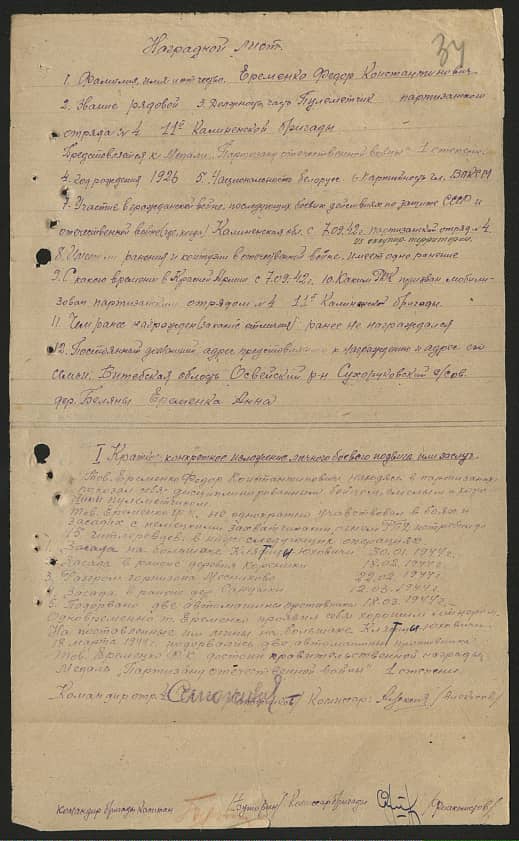 Наградной лист.
34
1. Фамилия, имя и отчество. Еременко Федор Константинович
2. Звание рядовой 3. Должность часть Пулеметчик партизанского
отряда №4 11й Калиненской бригады
Представляется к Медали "Партизану отечественной войны" 1 степени
4. год рождения 1926 5. Национальность белорус 6. Партийность чл. ВЛКСМ
7. Участие в гражданской войне, последующих боевых действиях по защите СССР и
отечественной войне (где, когда) Калиненская обл. с 7.09.42г. партизанский отряд №4.
8. Имеет ли ранения и контузии в отечественной войне. имеет одно ранение
9. С какого времени в Красной Армии с 7.09.42г. 10. Каким РВК призван мобили-
зован партизанским отрядом №4 11й Калининской бригады.
11. Чем ранее награжден ранее не награждался
12. Постоянный домашний адрес представляемого к награждению и адрес его
семьи. Витебская область Освейский р-н Сухоруковский с/сов.
дер. Беляны Еременка Анна
I Краткое конкретное изложение личного боевого подвига или заслуг.
Тов. Еременко Федор Константинович находясь в партизанах
показал себя дисциплинированным бойцом, смелым и хоро-
шим пулеметчиком.
Тов. Еременко Ф.К. неоднократно участвовал в боях и
засадах с немецкими захватчиками, огнем
15 гитлеровцев, в следующих операциях
1. Засада на большаке Клястицы Юховичи 30.01.1944г.
Засада в районе деревни 18.02.1944г.
3. Разгром гарнизона 22.02.1944г.
Засада в районе дер. 12.03.1944г.
5. Подорвано две автомашины противника 18.03.1944г.
Одновременно т. Еременко проявил себя хорошим минером.
На поставленные им мины на большаке Клястицы Юховичи
18 марта 1944г. подорвались две автомашины противника
Тов. Еременко Ф.К. достоин правительственной награды,
медаль "Партизану отечественной войны" 1 степени.
Командир отр. Комиссар:
Командир бригады Капитан Комиссар бригады